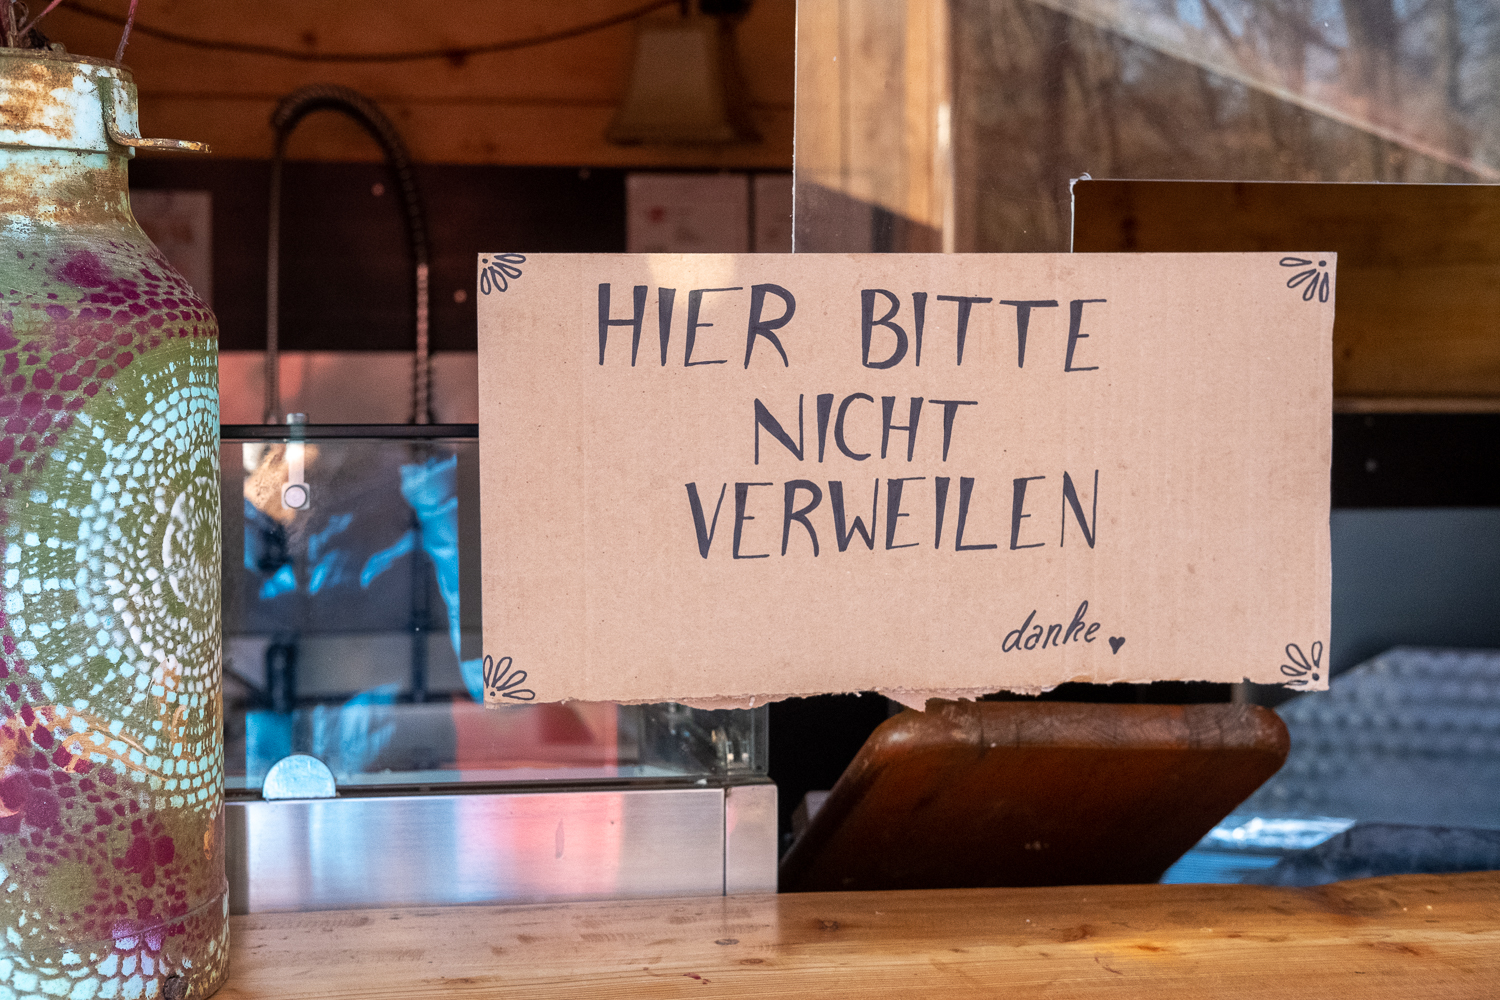 HIER BITTE
NICHT
VERWEILEN
danke